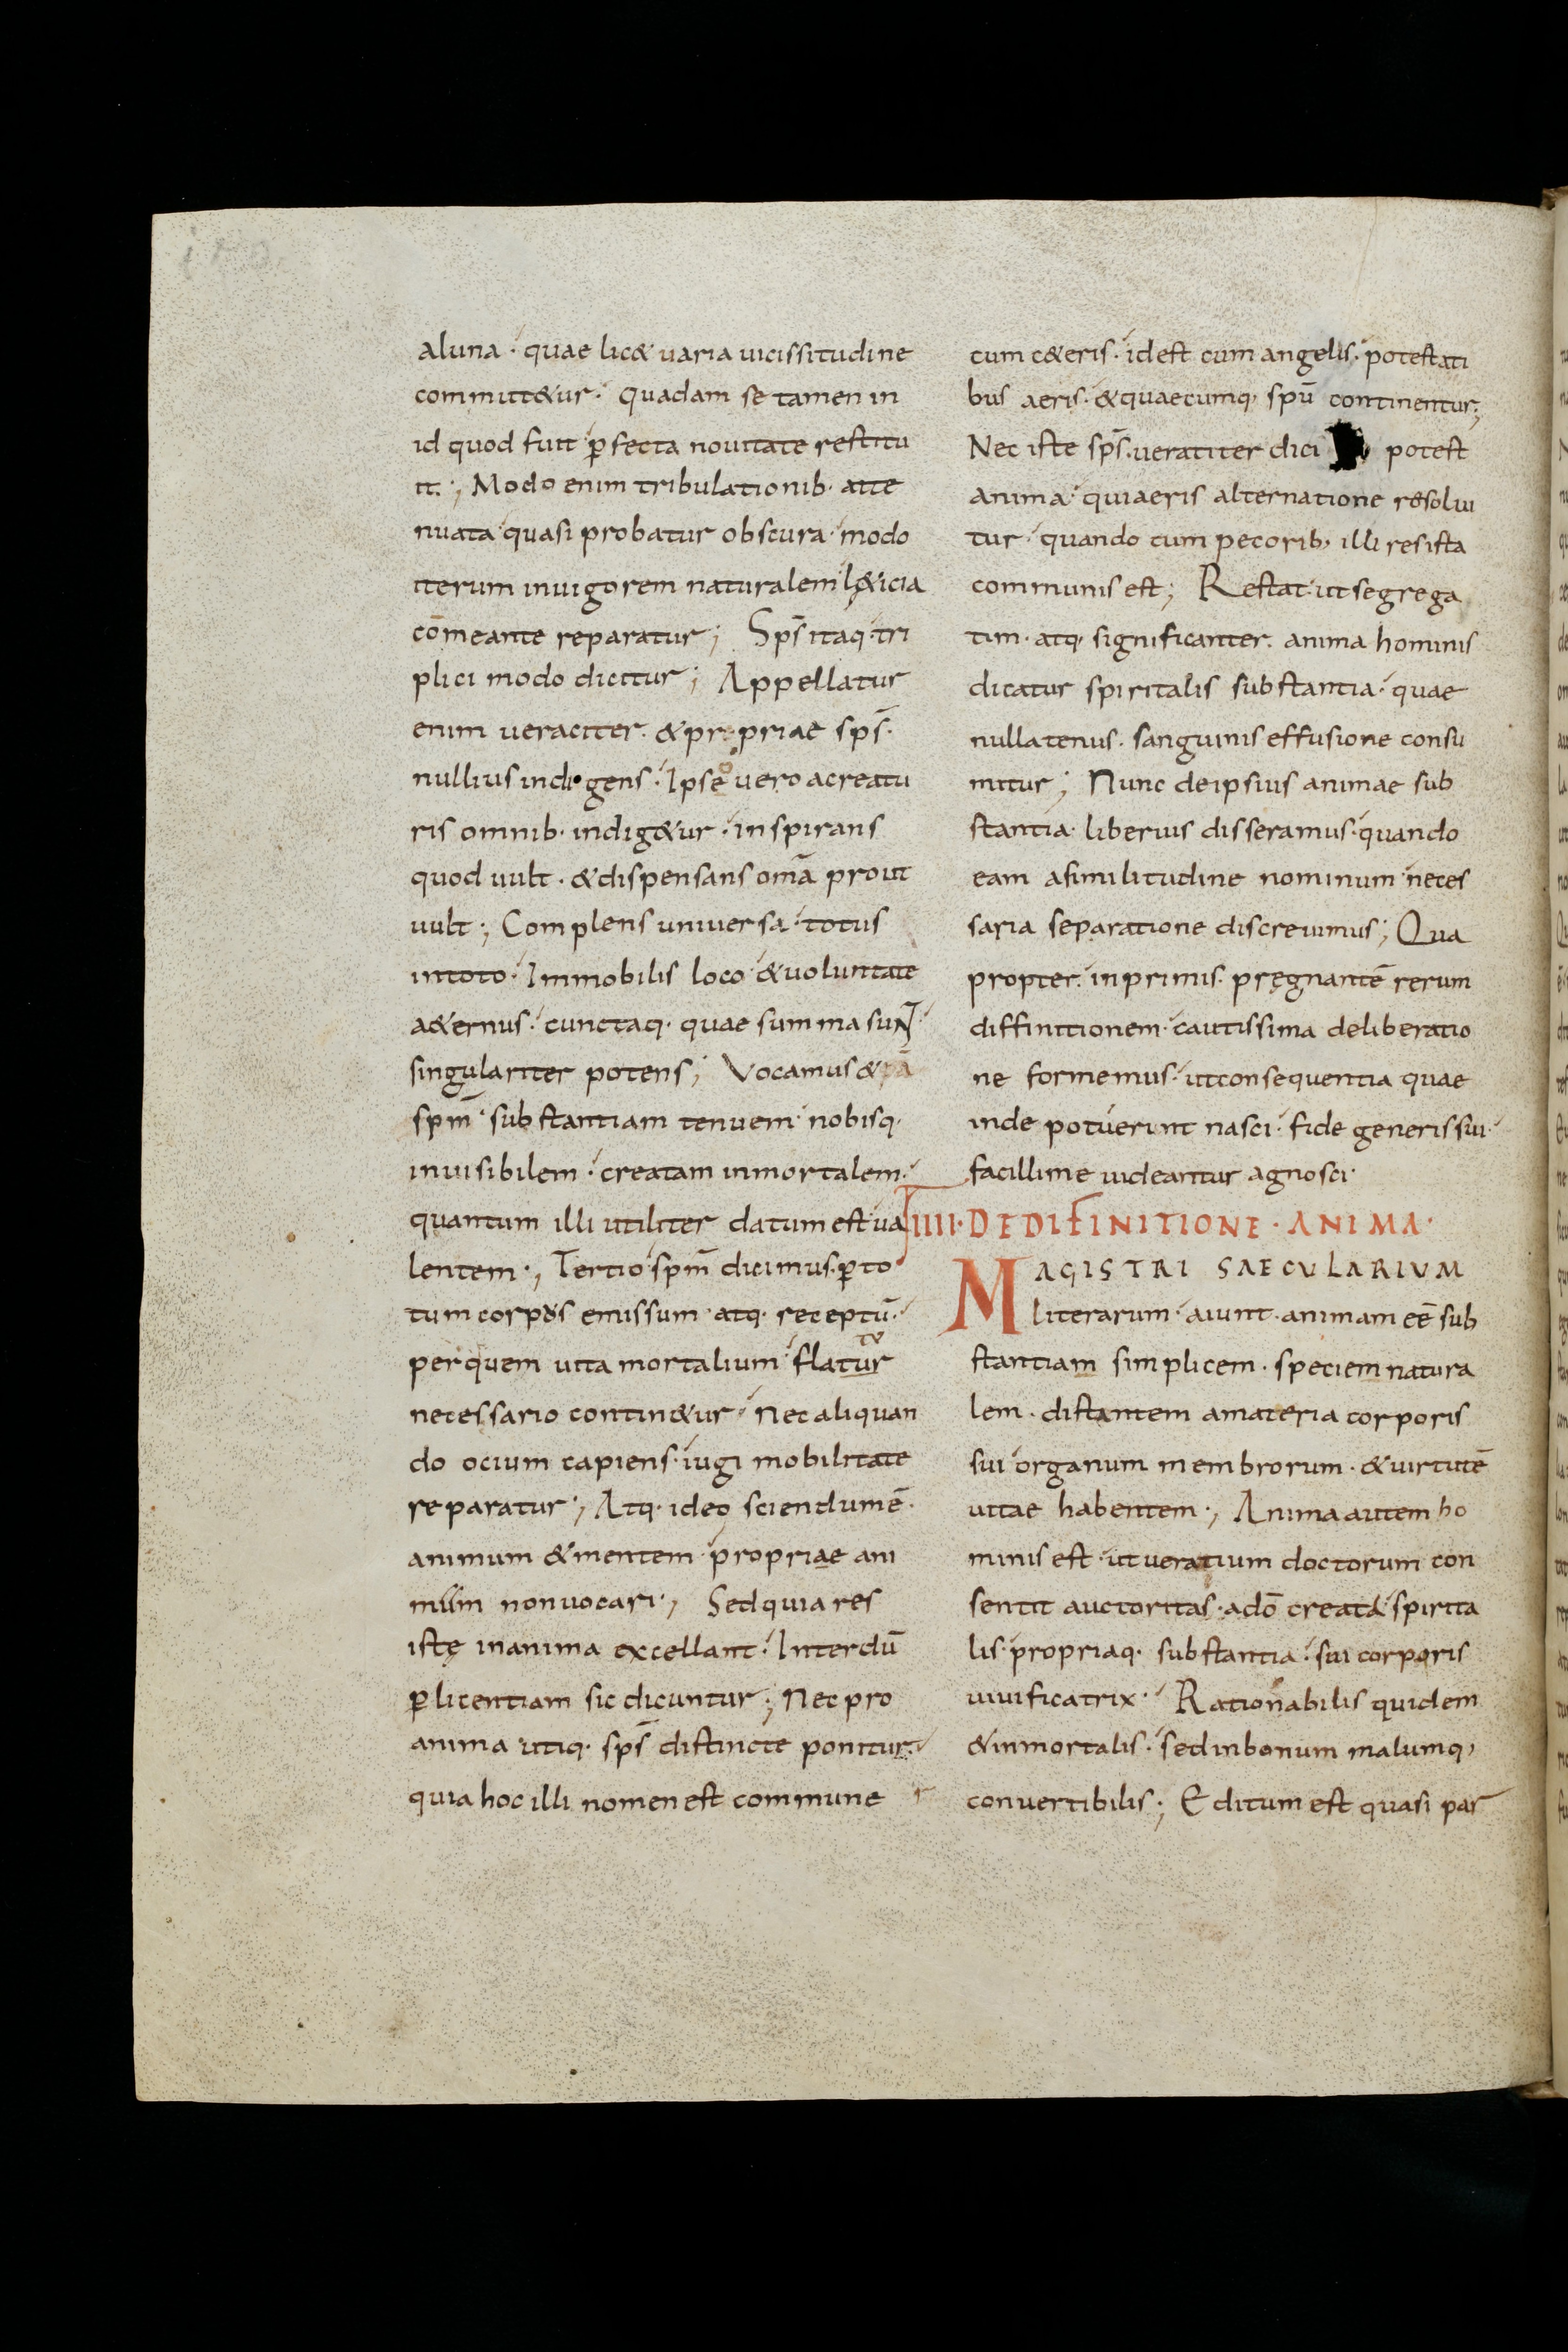 aluna · quae lic& uaria uicissitudine
committ&ur · quadam se tamen in
id quod fuit ꝑfecta nouitate restitu
it ·; Modo enim tribulationib· atte
nuata quasi probatur obscura · modo
iterum inuigorem naturalem l&icia
cōmeante reparatur; Sps̄ itaq· tri
plici modo dicitur; Appellatur
enim ueraciter · &propriae sps̄ ·
nullius indigens · Ipse uero acreatu
ris omnib· indig&ur · inspirans
quod uult · &dispensans omā prout
uult ·; Complens uniuersa · totus
intoto · Immobilis loco · &uoluntate
a&ernus · cunctaq· quae summa sunt ·
singulariter potens; Vocamus &
spm̄ · substantiam tenuem · nobisq·
inuisibilem · creatam inmortalem ·
quantum illi utiliter datum est ua
lentem ·; Tertio spm̄ dicimus · ꝑ to
tum corpus emissum · atq· receptū ·
tu
per quem uita mortalium · flatur
necessario contin&ur · Nec aliquan
do ocium capiens · iugi mobilitate
reparatur ·; Atq· ideo sciendum ē ·
animum &mentem propriae ani
mum non uocari ·; Sed quia res
istę inanima excellant · Interdū
ꝑ licentiam sic dicuntur; Nec pro
anima utiq· sps̄ distincte ponitur ·
quia hoc illi nomen est commune
cum c&eris · id est cum angelis · potestati
bus aeris · &quaecumq· spū continentur;
Nec iste sps̄ · ueraciter dici potest
anima · quiaeris alternatione resolui
tur · quando cum pecorib· illi res ista
communis est; Restat · ut segrega
tim · atq· significanter · anima hominis
dicatur spiritalis substantia · quae
nullatenus · sanguinis effusione consu
mitur; Nunc deipsius animae sub
stantia · liberius disseramus · quando
eam asimilitudine nominum neces
saria separatione discreuimus; Qua
propter · inprimis · pręgnantē rerum
diffinitionem · cautissima deliberatio
ne formemus · ut consequentia quae
inde potuerint nasci · fide generis sui ·
facillime uideantur agnosci ·
IIII · DE DIFINITIONE · ANIMA ·
MAGISTRI SAECULARIUM
literarum · aiunt · animam eē sub
stantiam simplicem · speciem natura
lem · distantem amateria corporis
sui organum membrorum · &uirtutē
uitae habentem ·; Anima autem ho
minis est · ut ueracium doctorum con
sentit auctoritas · adō creata spirita
lis · propriaq· substantia · sui corporis
uiuificatrix · Rationabilis quidem
&inmortalis · sed inbonum malumq·
conuertibilis; Editum est quasi par